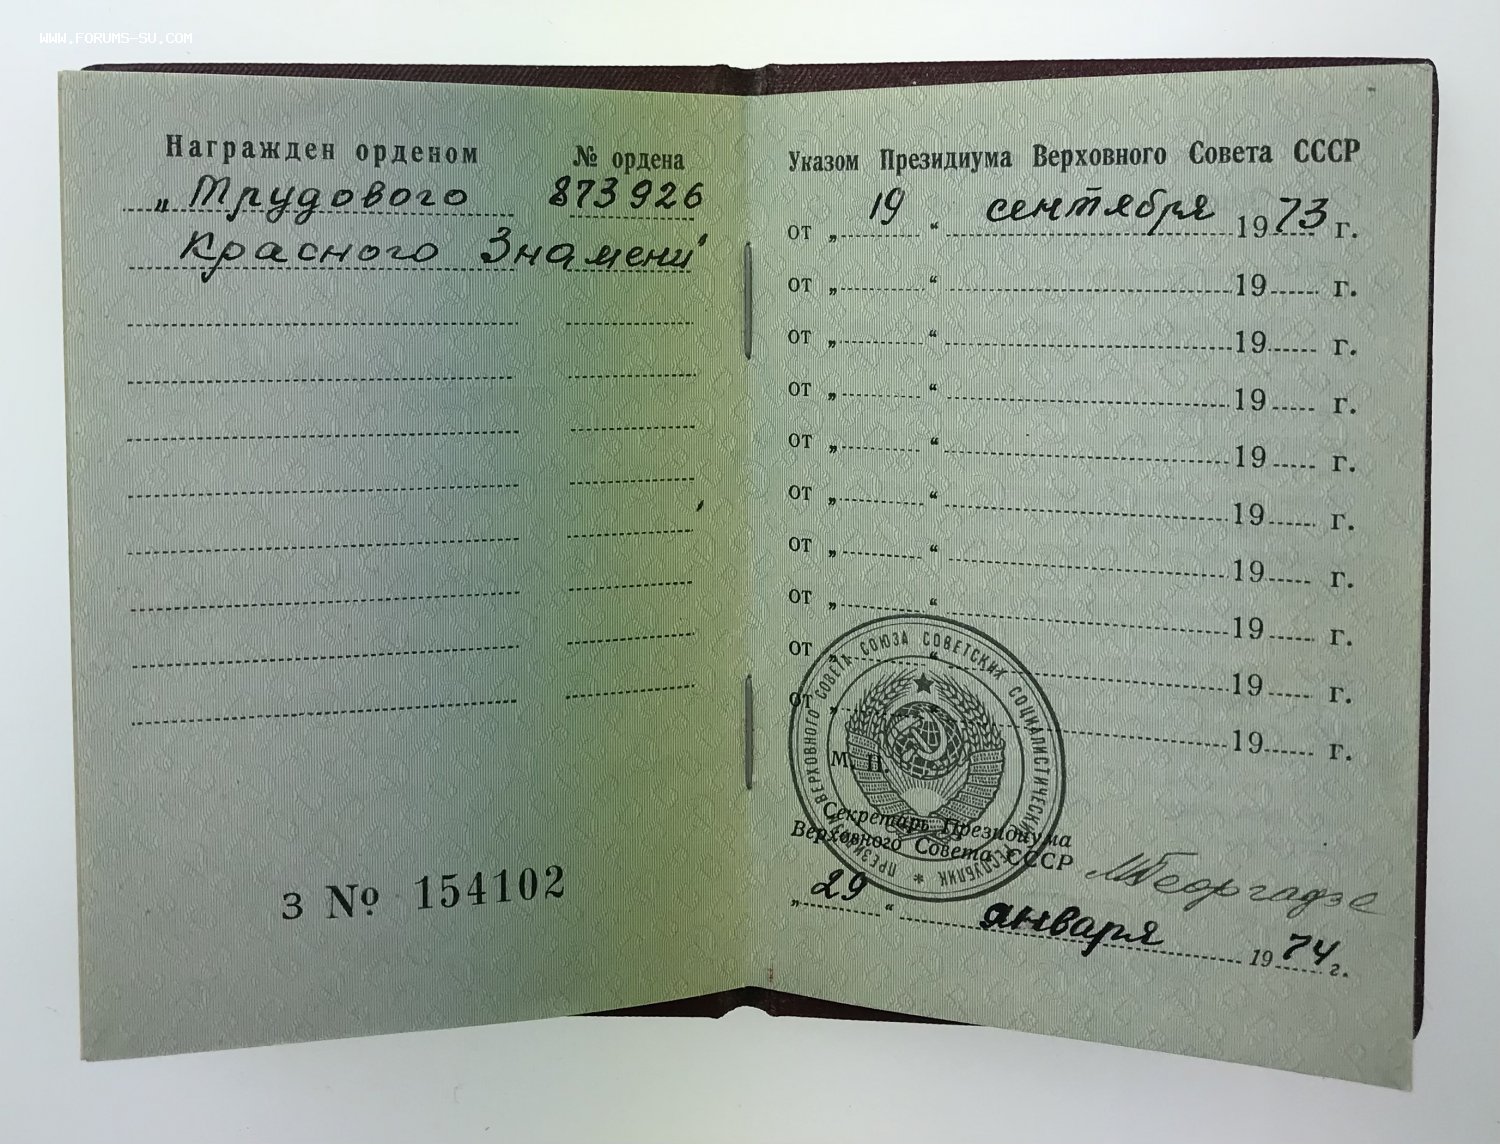 WWW.FORUMS-SU.COM
Награжден орденом № ордена
„Трудового 873926
Красного Знамени"
З № 154102
Указом Президиума Верховного Совета СССР
от „ 19 “ сентября 1973 г.
от „ “ 19 г.
от „ “ 19 г.
от „ “ 19 г.
от „ “ 19 г.
от „ “ 19 г.
от „ “ 19 г.
от „ “ 19 г.
от „ “ 19 г.
от „ 19 г.
ПРЕЗИДИУМ ВЕРХОВНОГО СОВЕТА СОЮЗА СОВЕТСКИХ СОЦИАЛИСТИЧЕСКИХ РЕСПУБЛИК *
М. П.
Секретарь Президиума
Верховного Совета СССР МГеоргадзе
„ 29 “ января 1974 г.